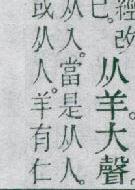 經改
已。
从羊大聲
从人。當是从人。
或从人羊有仁